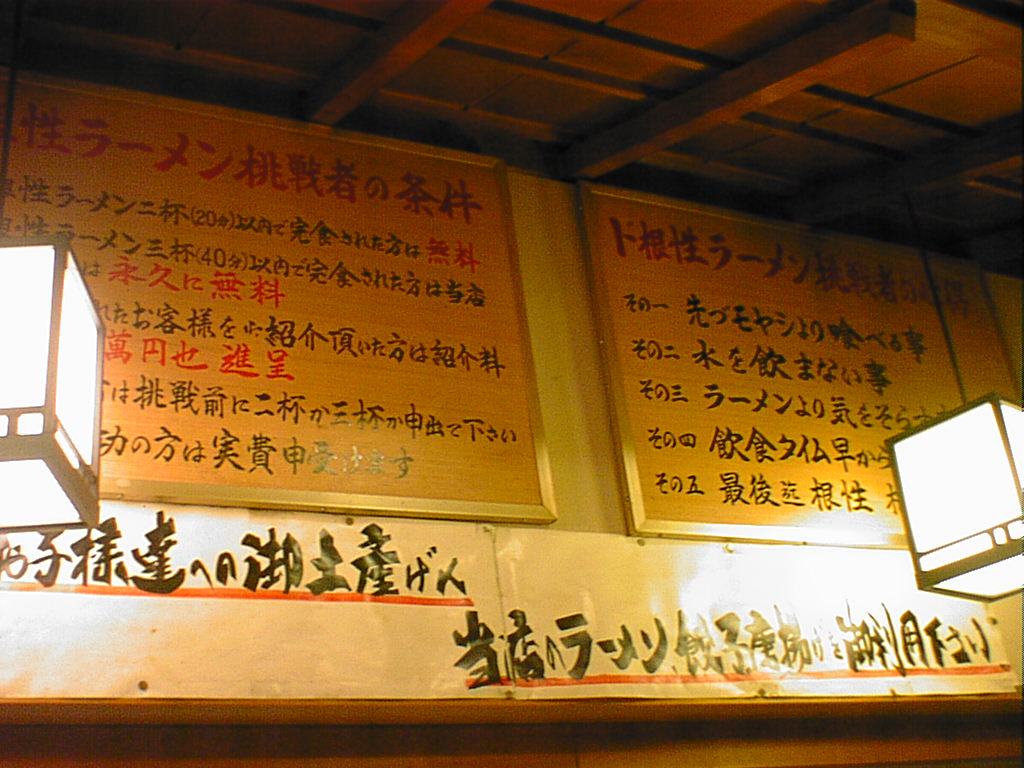 性ラーメン挑戦者の条件
性ラーメン二杯(20分)以内で完食された方は無料
性ラーメン三杯(40分)以内で完食された方は当店
は永久に無料
れたお客様を紹介頂いた方は紹介料
萬円也進呈
は挑戦前に二杯か三杯か申出て下さい
功の方は実費申受けます
ド根性ラーメン挑戦者の心得
その一 先づモヤシより喰べる事
その二 水を飲まない事
その三 ラーメンより気をそらす
その四 飲食タイム早から
その五 最後迄根性
お子様達への御土産げん
当店のラーメン、餃子、唐揚げを御利用下さい